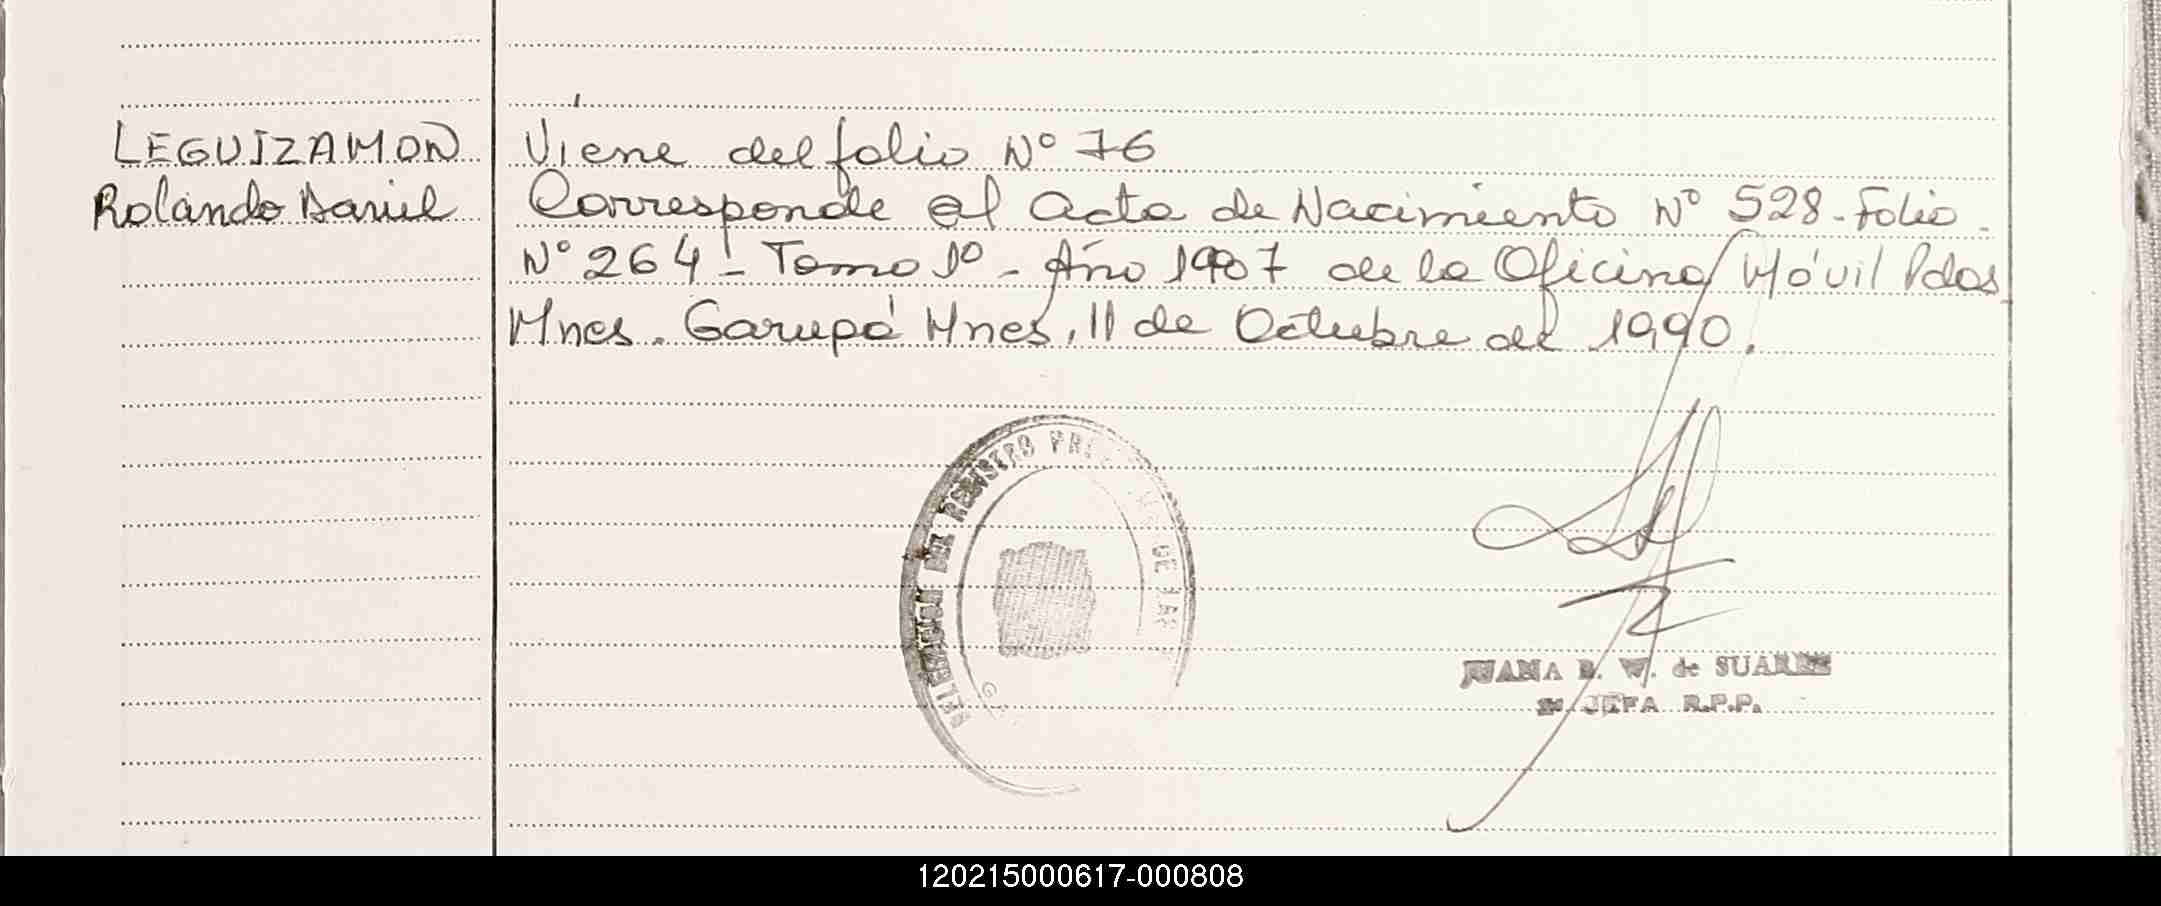 LEGUIZAMON
Rolando Daniel
Viene del folio Nº 76
Corresponde al acta de Nacimiento Nº 528 - Folio
Nº 264 - Tomo 1º - Año 1987 de la Oficina Móvil Pdas
Mnes. Garupá Mnes, 11 de Octubre de 1990.
DELEGACION DEL REGISTRO
DE LAS
JUANA B. W. de SUAREZ
JEFA R.P.P.
120215000617-000808